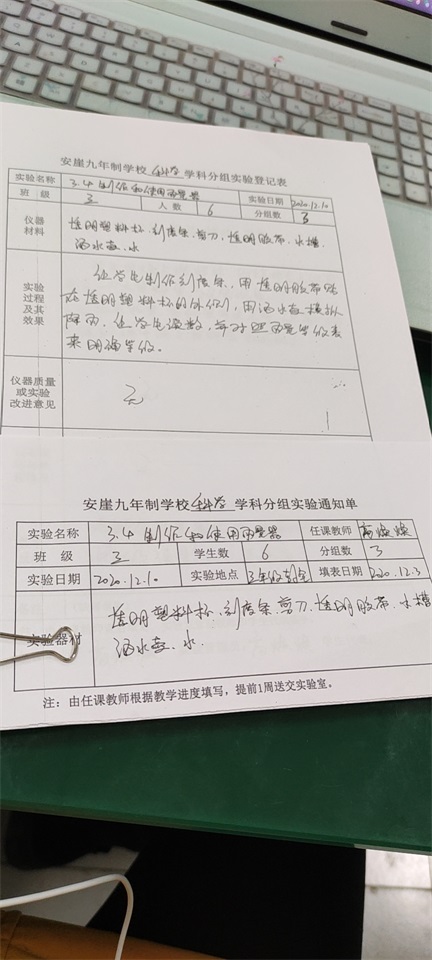 安崖九年制学校 科学 学科分组实验登记表
实验名称 3.4 制作和使用雨量器 实验日期 2020.12.10
班 级 3 人 数 6 分组数 3
仪器
材料
透明塑料杯、刻度条、剪刀、透明胶带、水槽
洒水壶、水
实验
过程
及其
效果
让学生制作刻度条，用透明胶带贴
在透明塑料杯的外侧，用洒水壶模拟
降雨，让学生读数，并对照雨量等级表
来明确等级。
仪器质量
或实验
改进意见
无
安崖九年制学校 科学 学科分组实验通知单
实验名称 3.4 制作和使用雨量器 任课教师
班 级 3 学生数 6 分组数 3
实验日期 2020.12.10 实验地点 三年级教室 填表日期 2020.12.3
实验器材
透明塑料杯、刻度条、剪刀、透明胶带、水槽
洒水壶、水.
注：由任课教师根据教学进度填写，提前1周送交实验室。